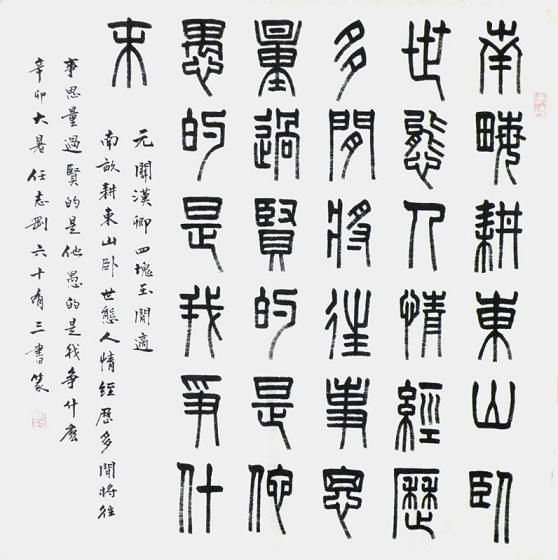 南畮耕東山卧
世態人情經歷
多閒將往事思
量過賢的是他
愚的是我爭什
末
元關漢卿四塊玉閒適
南畝耕東山卧世態人情經歷多閒將往
事思量過賢的是他愚的是我争什麽
辛卯大暑任志剛六十有三書篆